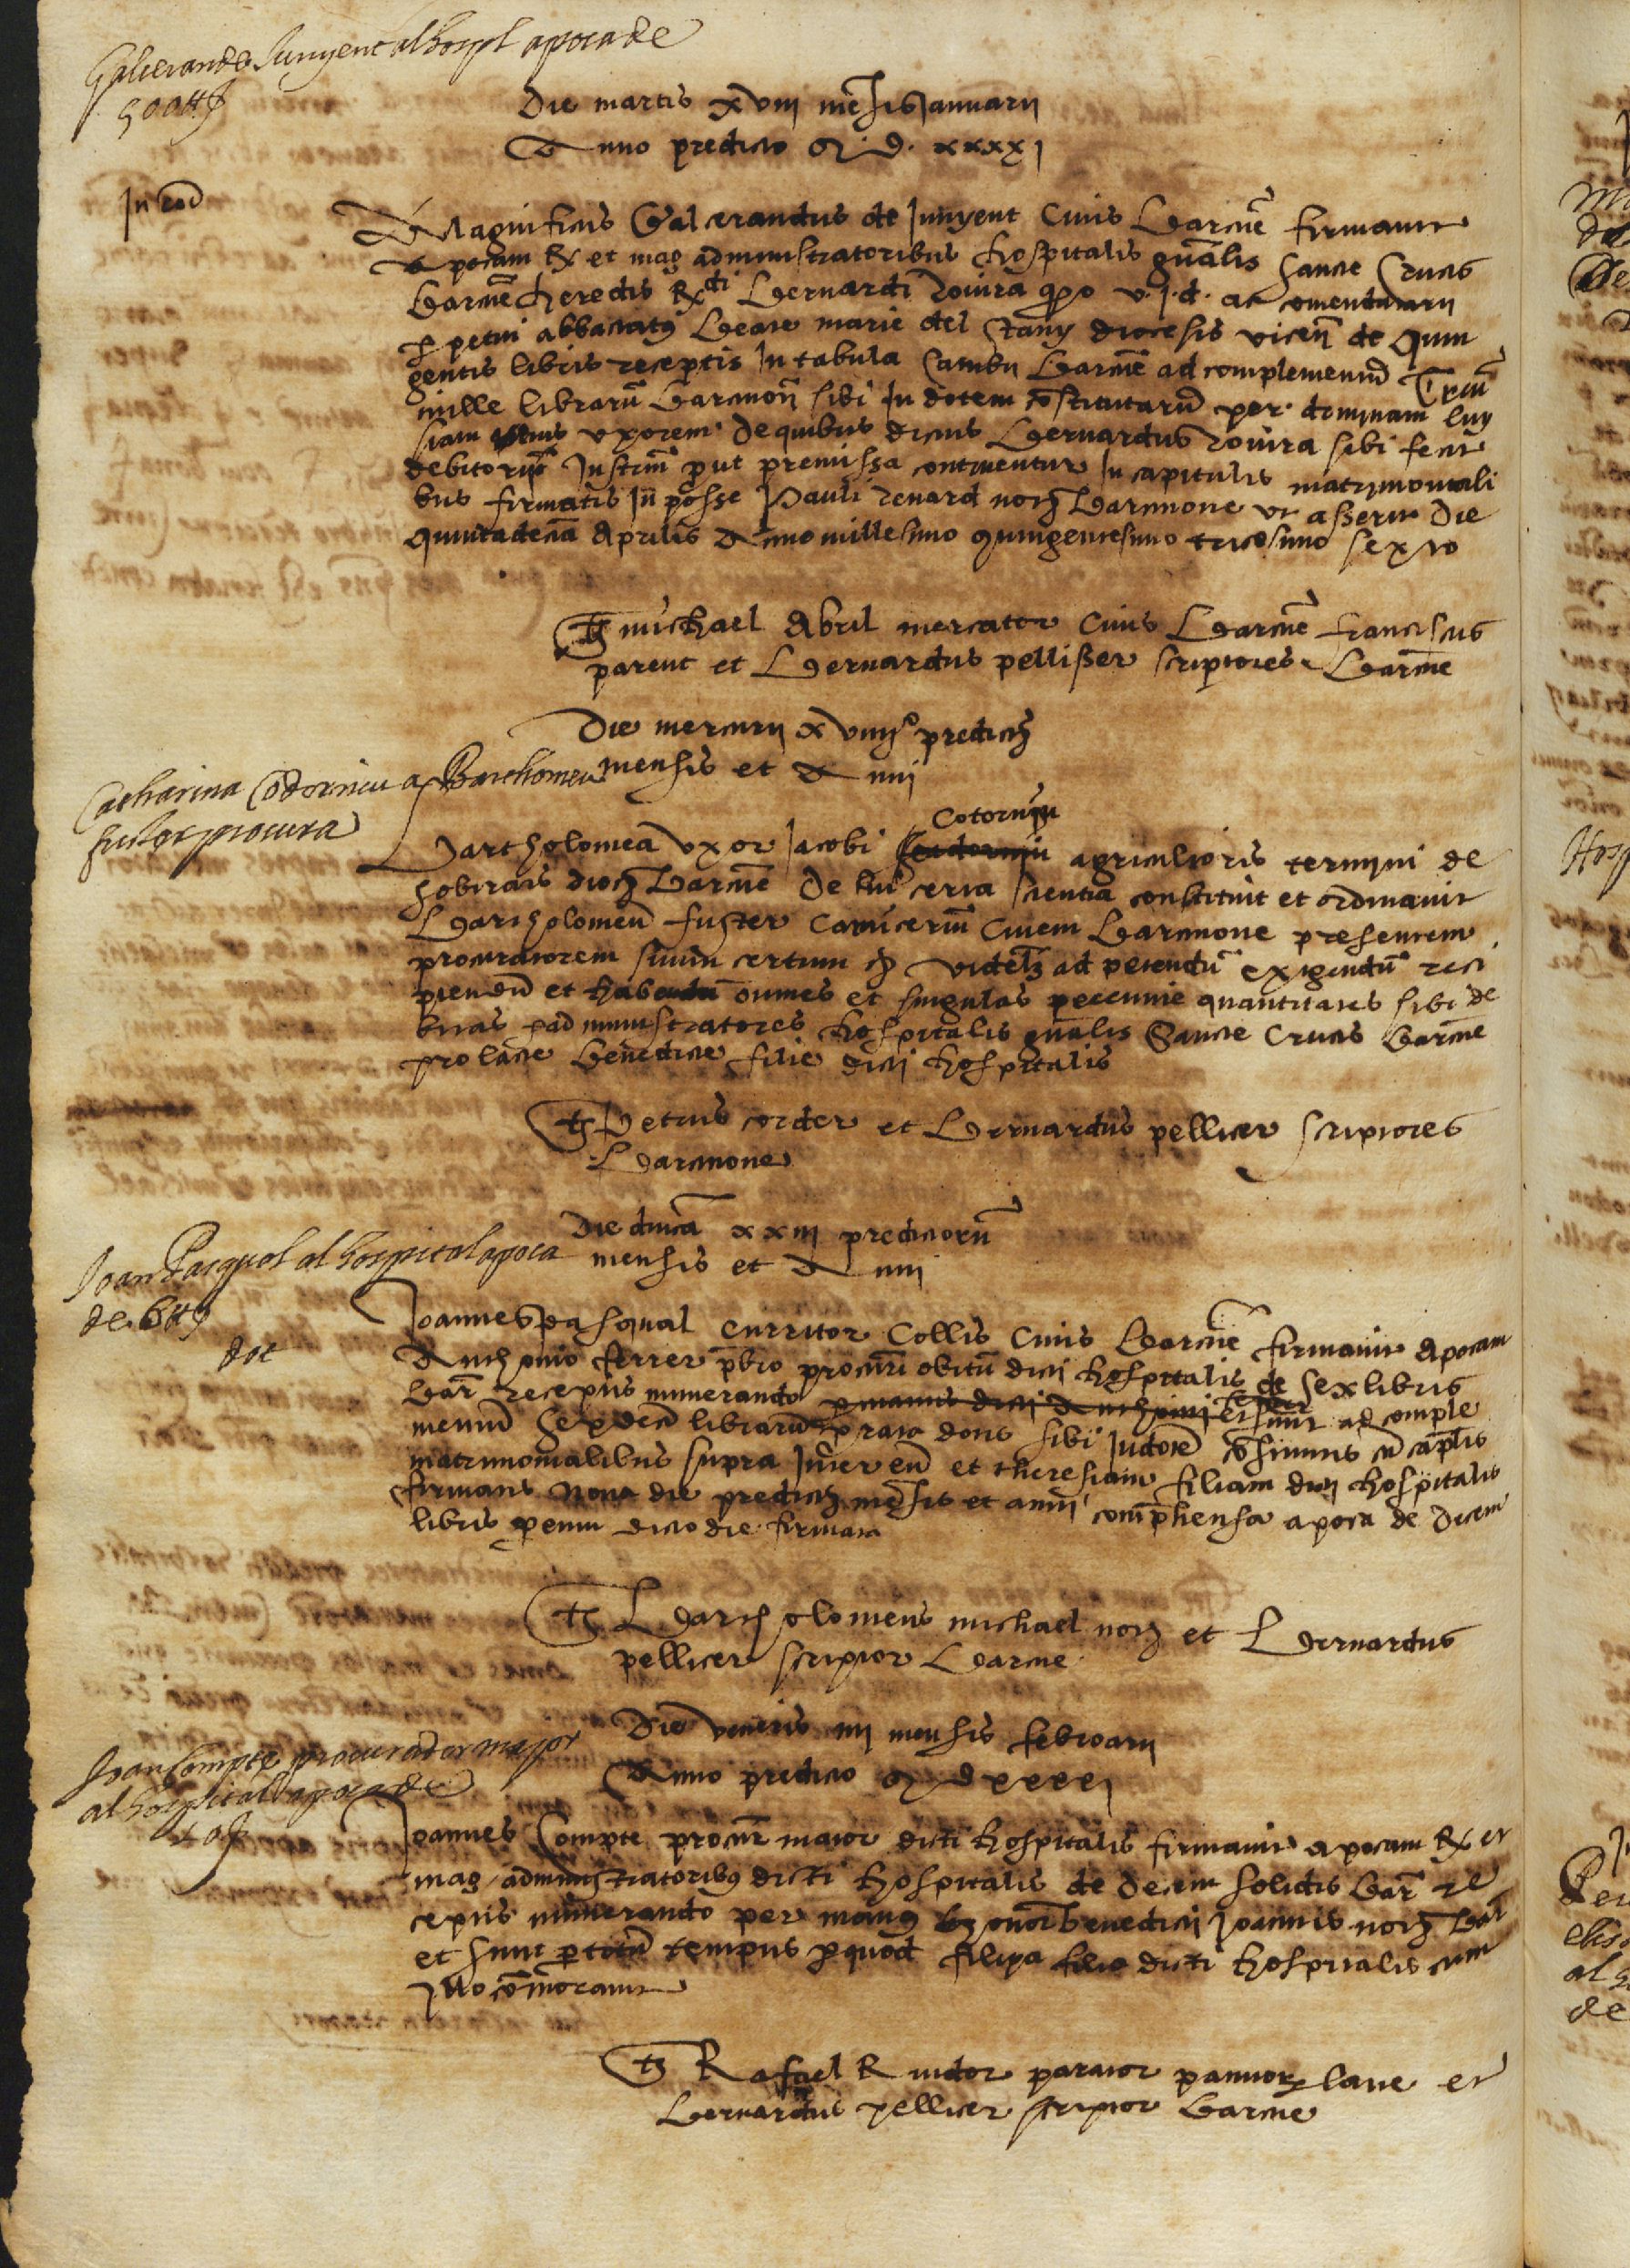 Galceran de Junyent al hospl apoca de
500 ₶ ȷ
Die martis xviii mẽsis Januarii
Anno predicto M. D. xxxxi
In eod
Magnificus Galcerandus de Junyent civis Barcñe firmavit
apocam Rx et mag administratoribus hospitalis gñalis Sancte Crucis
Barcñe heredis Rxdi Bernardi Rovira qº v. j. d. ac comendatarii
ppetui abbaciatus Beate marie del Stany diocesis vicẽn de quin
gentis libris receptis In tabula Cambii Barcñe ad complementũ Triũ
mille librarũ Barcinoñ sibi In dotem cõstitutarũ per dominam luy
siam eius uxorem de quibus dictus Bernardus Rovira sibi fecit
debitoriũ Instrũ put premissa continentur In capitulis matrimoniali
bus firmatis In posse Pauli Renard notͥ Barcinone ut asserit die
quintadecĩa Aprilis Anno millesimo quingentesimo tricesimo sexto
Tͭ michael Abril mercator civis Barcñe franciscus
parent et Bernardus pellisser scriptores Barcñe
Die mercurii xviiiiº predictͥ
mensis et Anni
Catharina Codorniu a Barthomeu
fuster procura
Cotorniu
Bartholomea uxor Jacobi Codorniu agricultoris termini de
sobirats diocͥ Barcñe De sui certa scientia constituit et ordinavit
Bartholomeũ fuster carnicerũ civem Barcinone presentem
procuratorem suum certum etͥ videlͥ ad petendũ exigendũ reci
piendũ et habendũ omnes et singulas peccunie quantitates sibi de
bitas p administratores hospitalis gñalis Sancte Crucis Barcñe
pro lacte Benedicte filie dicti hospitalis
Tͭ Petrus corder et Bernardus pellicer scriptores
Barcinone
Die dnĩca xxiii predictorũ
mensis et Anni
Joan Pasqual al hospital apoca
de 6 ₶
dot
Joannes pasqual curritor Collis civis Barcñe firmavit Apocam
Anthonio ferrer p̃bro procurĩ obituũ dicti hospitalis de sex libris
Bar̃ receptis numerando p manus dicti Anthonii et sunt ad comple
mentũ sexdecĩ librarũ p rata dotis sibi In dotẽ cõstitutis cũ caplis
matrimonialibus supra Inter eũ et theresiam filiam dicti hospitalis
firmatis nona die predictͥ mẽsis et anni comp̃hensa apoca de decem
libris penin dicto die firmata
Tͭ Bartholomeus michael notͥ et Bernardus
pellicer scriptor Barcñe
Die veneris iiii mensis februarii
Anno predicto M D xxxxi
Joan Compte procurador major
al hospital apoca de
10 ȷ
Joannes Compte procur̃ maior dicti hospitalis firmavit apocam Rx et
mag administratoribus dicti hospitalis de decem solidis Bar̃ re
ceptis numerando per manus honor̃ benedicti Joannis notͥ Bar̃
et sunt p totũ tempus p quod filipa filia dicti hospitalis cum
illo cõmoravit
Tͭ Rafael Ruidor parator pannoꝝ lane et
Bernardus pellicer scriptor Barcñe